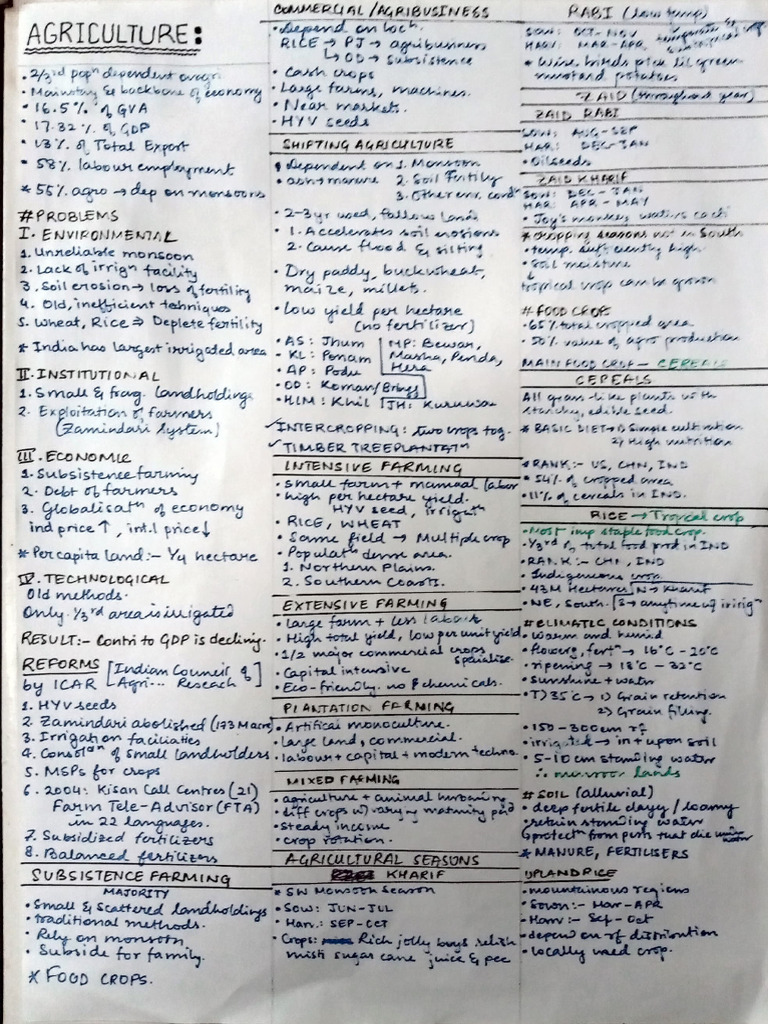 AGRICULTURE:
• 2/3rd popn dependent on agri
• Mainstay & backbone of economy
• 16.5% of GVA
• 17.32% of GDP
• 13% of Total Export
• 58% labour employment
* 55% agro → dep on monsoons
# PROBLEMS
I. ENVIRONMENTAL
1. Unreliable monsoon
2. Lack of irrign facility
3. Soil erosion → loss of fertility
4. Old, inefficient techniques
5. Wheat, Rice ⇒ Deplete fertility
* India has largest irrigated area
II. INSTITUTIONAL
1. Small & frag. landholdings
2. Exploitation of farmers
(Zamindari System)
III. ECONOMIC
1. Subsistence farming
2. Debt of farmers
3. Globalisatn of economy
ind price ↑, int.l price ↓
* Per capita land:- 1/4 hectare
IV. TECHNOLOGICAL
Old methods.
Only 1/3rd area is irrigated
RESULT:- Contri to GDP is declining.
REFORMS [Indian Council of
by ICAR Agri... Reseach]
1. HYV seeds
2. Zamindari abolished (173 M acre)
3. Irrigation faciliaties
4. Consoln of small landholders
5. MSPs for crops
6. 2004: Kisan Call Centres (21)
Farm Tele-Advisor (FTA)
in 22 languages.
7. Subsidized fertilizers
8. Balanced fertilizers
SUBSISTENCE FARMING
MAJORITY
• Small & scattered landholdings
• traditional methods.
• Rely on monsoon
• Subside for family.
* FOOD CROPS.
COMMERCIAL/AGRIBUSINESS
• Depend on locn.
RICE → PJ → agribusiness
↳ OD → subsistence
• Cash crops
• Large farms, machines.
• Near markets.
• HYV seeds
SHIFTING AGRICULTURE
• Dependent on 1. Monsoon
• ash → manure 2. Soil Fertility
3. Other env. condn
• 2-3 yr used, fallow land
• 1. Accelerates soil erosions
2. Cause flood & silting
• Dry paddy, buckwheat,
maize, millets.
• Low yield per hectare
(no fertilizer)
• AS: Jhum MP: Bewar,
• KL: Ponam Masha, Penda,
• AP: Podu Hera
• OD: Koman/Bringa
• HIM: Khil JH: Kuruwa
✓ INTERCROPPING: two crops tog.
✓ TIMBER TREE PLANTATn
INTENSIVE FARMING
• small farm + manual labor
• high per hectare yield.
HYV seed, irrigatn
• RICE, WHEAT
• Same field → Multiple crop
• Populatn dense area.
1. Northern Plains.
2. Southern Coasts.
EXTENSIVE FARMING
• large farm + less labour
• High total yield, low per unit yield
• 1/2 major commercial crops
specialise.
• Capital intensive
• Eco-friendly. no chemicals.
PLANTATION FARMING
• Artifical monoculture.
• large land, commercial.
• labour + capital + modern techno.
MIXED FARMING
• agriculture + animal husbandry
• diff crops w/ varying maturity
• steady income
• crop rotation.
AGRICULTURAL SEASONS
KHARIF
* SW Monsoon Season
• Sow: JUN-JUL
• Harv: SEP-OCT
• Crops: Rich jolly boys relish
misti sugar cane juice & pee
RABI (low temp)
SOW: OCT-NOV
HARV: MAR-APR
• Wise birds pick lil green
mustard potatoes
ZAID (throughout year)
ZAID RABI
SOW: AUG-SEP
HAR: DEC-JAN
• Oilseeds
ZAID KHARIF
SOW: DEC-JAN
HAR: APR-MAY
• Joy's monkey waters
* cropping seasons not in South
• temp. sufficiently high
• Soil moisture
↓
tropical crop can be grown
# FOOD CROPS
• 65% total cropped area
• 50% value of agro production
MAIN FOOD CROP - CEREALS
CEREALS
All grass-like plants with
starchy, edible seed.
* BASIC DIET → 1) Simple cultivation
2) High nutrition
* RANK:- US, CHN, IND
• 54% of cropped area
• 11% of cereals in IND.
RICE → Tropical crop
• Most imp staple food crop.
• 1/3rd of total food prod in IND
• RANK:- CHN, IND
• Indigeneous crop
• 43M Hectares N → Kharif
• NE, South. S → anytime w/ irrign
# CLIMATIC CONDITIONS
• Warm and humid
• flowerg, fertn → 16°C - 20°C
• ripening → 18°C - 32°C
• sunshine + water
• T) 35°C → 1) Grain retention
2) Grain filling.
• 150-300 cm rf
• irrigated → in + upon soil
• 5-10 cm standing water
∴ marsoor lands
# SOIL (alluvial)
• deep fertile clayy/loamy
• retain standing water
(protectn from pests that die under
water
* MANURE, FERTILISERS
UPLAND RICE
• mountainous regions
• Sown:- Mar-APR
• Harv:- Sep-Oct
• depend on rf distribution
• locally used crop.